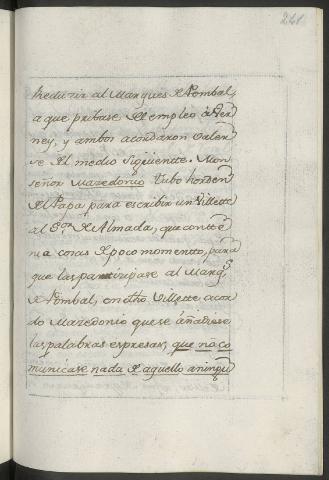 241.
Reducir al Marques de Pombal,
a que pribase del empleo à Ver
ney, y ambos acordaron valer
se del medio siguiente. Mon
señor Mazedonio tubo horden
del Papa para escribir un Villette
al Com.or de Almada, que contte
nia cosas de poco momentto, para
que las partizipase al Marq.s
de Pombal, en dho Villette acor
dò Mazedonio que se añadiese
las palabras espresas; que no co
municase nada de aquello a ningu